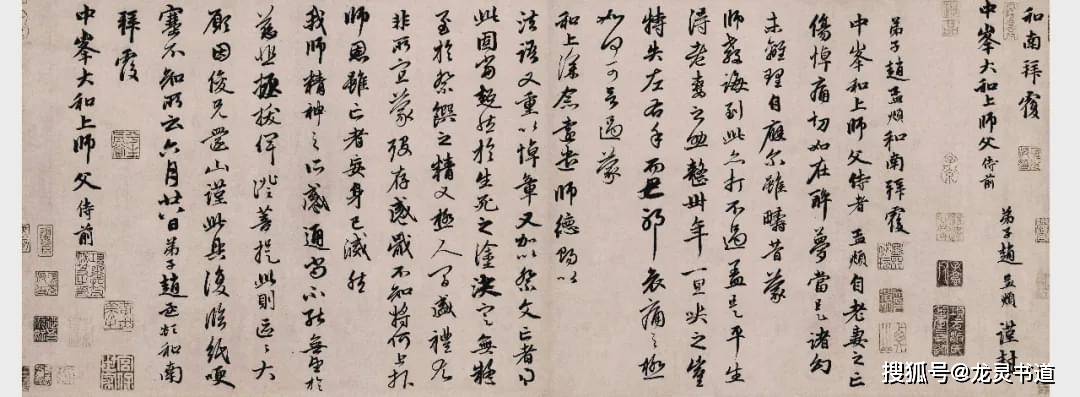 和南拜覆
中峯大和上師父侍前 弟子趙孟頫謹封
弟子趙孟頫和南拜覆
中峯和上師父侍者孟頫自老妻之亡
傷悼痛切如在醉夢當是諸幻
未離理自應尔雖疇昔蒙
師教誨到此亦打不過蓋是平生
得老妻之助整卅年一旦哭之豈
特失左右手而已耶哀痛之極
如何可言過蒙
和上深念遠遣師德賜以
法語又重以悼章又加以祭文亡者得
此固當超然於生死之塗決定無疑
至於祭饌之精又極人間盛禮尤
非所宜蒙歿存感戴不知將何上報
師恩雖亡者妄身已滅然
我師精神之所感通尚不能無望於
慈悲拯拔俾證菩提此則區區大
願因俊兄還山謹此具復臨紙哽
塞不知所云六月廿八日弟子趙孟頫和南
拜覆
中峯大和上師父侍前
搜狐号@龙灵书道